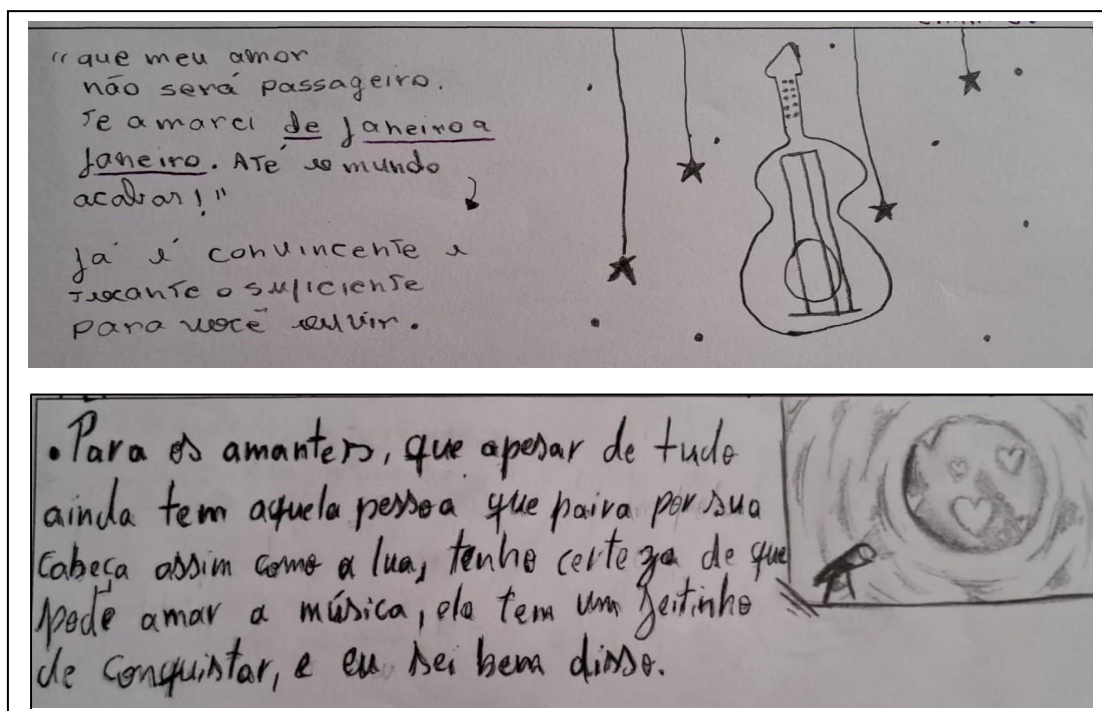 "que meu amor
não será passageiro.
Te amarei de Janeiro a
Janeiro. Até o mundo
acabar!"
Já é convincente e
tocante o suficiente
para você ouvir.
• Para os amantes, que apesar de tudo
ainda tem aquela pessoa que paira por sua
cabeça assim como a lua, tenho certeza de que
pode amar a música, ela tem um jeitinho
de conquistar, e eu sei bem disso.